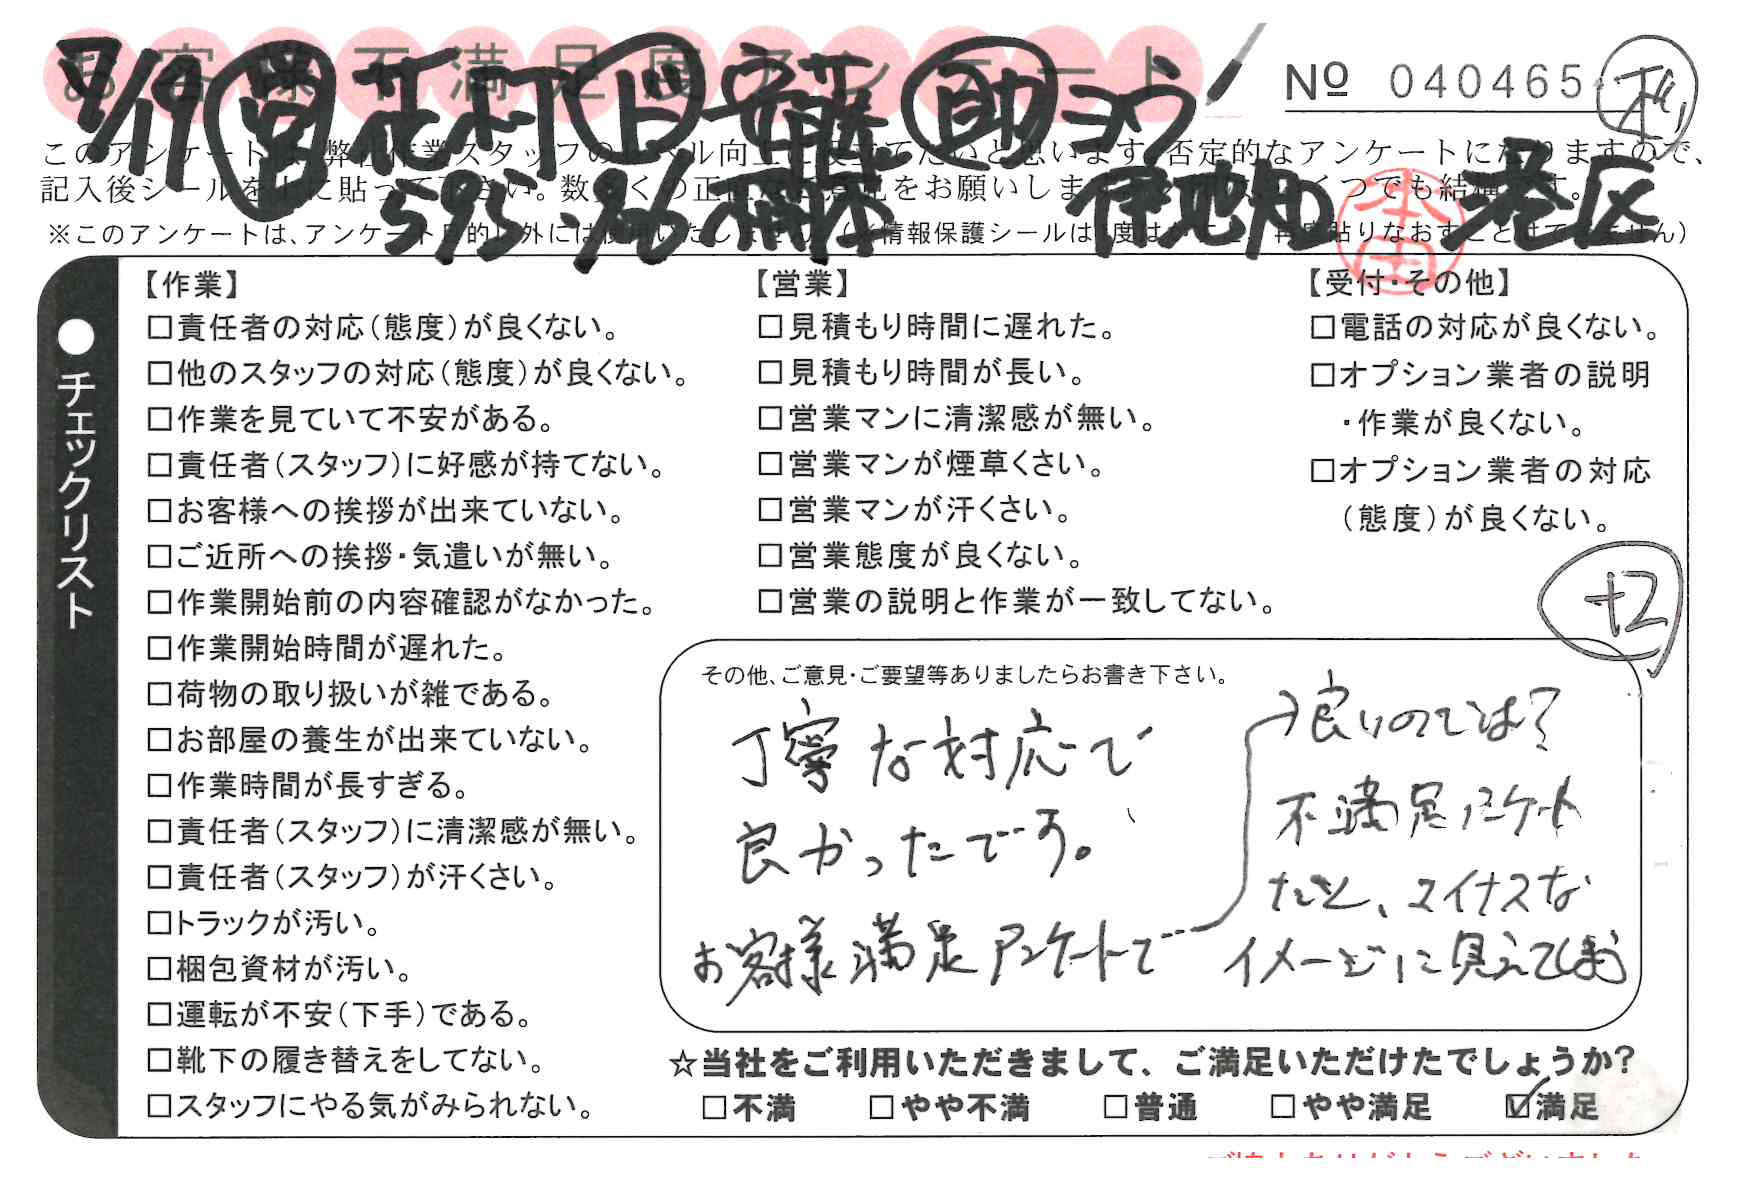 お客様不満足度アンケート
7/19
№ 040465
このアンケートは、弊社作業スタッフのレベル向上に役立てたいと思います。否定的なアンケートになりますので、
記入後シールを上に貼って下さい。数多くの正直なご意見をお願いします。
いくつでも結構です。
※このアンケートは、アンケート目的以外には使用いたしません。
595
港区
本田
●チェックリスト
【作業】
□責任者の対応(態度)が良くない。
□他のスタッフの対応(態度)が良くない。
□作業を見ていて不安がある。
□責任者(スタッフ)に好感が持てない。
□お客様への挨拶が出来ていない。
□ご近所への挨拶・気遣いが無い。
□作業開始前の内容確認がなかった。
□作業開始時間が遅れた。
□荷物の取り扱いが雑である。
□お部屋の養生が出来ていない。
□作業時間が長すぎる。
□責任者(スタッフ)に清潔感が無い。
□責任者(スタッフ)が汗くさい。
□トラックが汚い。
□梱包資材が汚い。
□運転が不安(下手)である。
□靴下の履き替えをしてない。
□スタッフにやる気がみられない。
【営業】
□見積もり時間に遅れた。
□見積もり時間が長い。
□営業マンに清潔感が無い。
□営業マンが煙草くさい。
□営業マンが汗くさい。
□営業態度が良くない。
□営業の説明と作業が一致してない。
【受付・その他】
□電話の対応が良くない。
□オプション業者の説明
・作業が良くない。
□オプション業者の対応
(態度)が良くない。
+2
その他、ご意見・ご要望等ありましたらお書き下さい。
丁寧な対応で
良かったです。
お客様満足アンケートで
→良いのでは?
不満足アンケート
だと、マイナスな
イメージに見えてしまう
☆当社をご利用いただきまして、ご満足いただけたでしょうか?
□不満 □やや不満 □普通 □やや満足 ☑満足